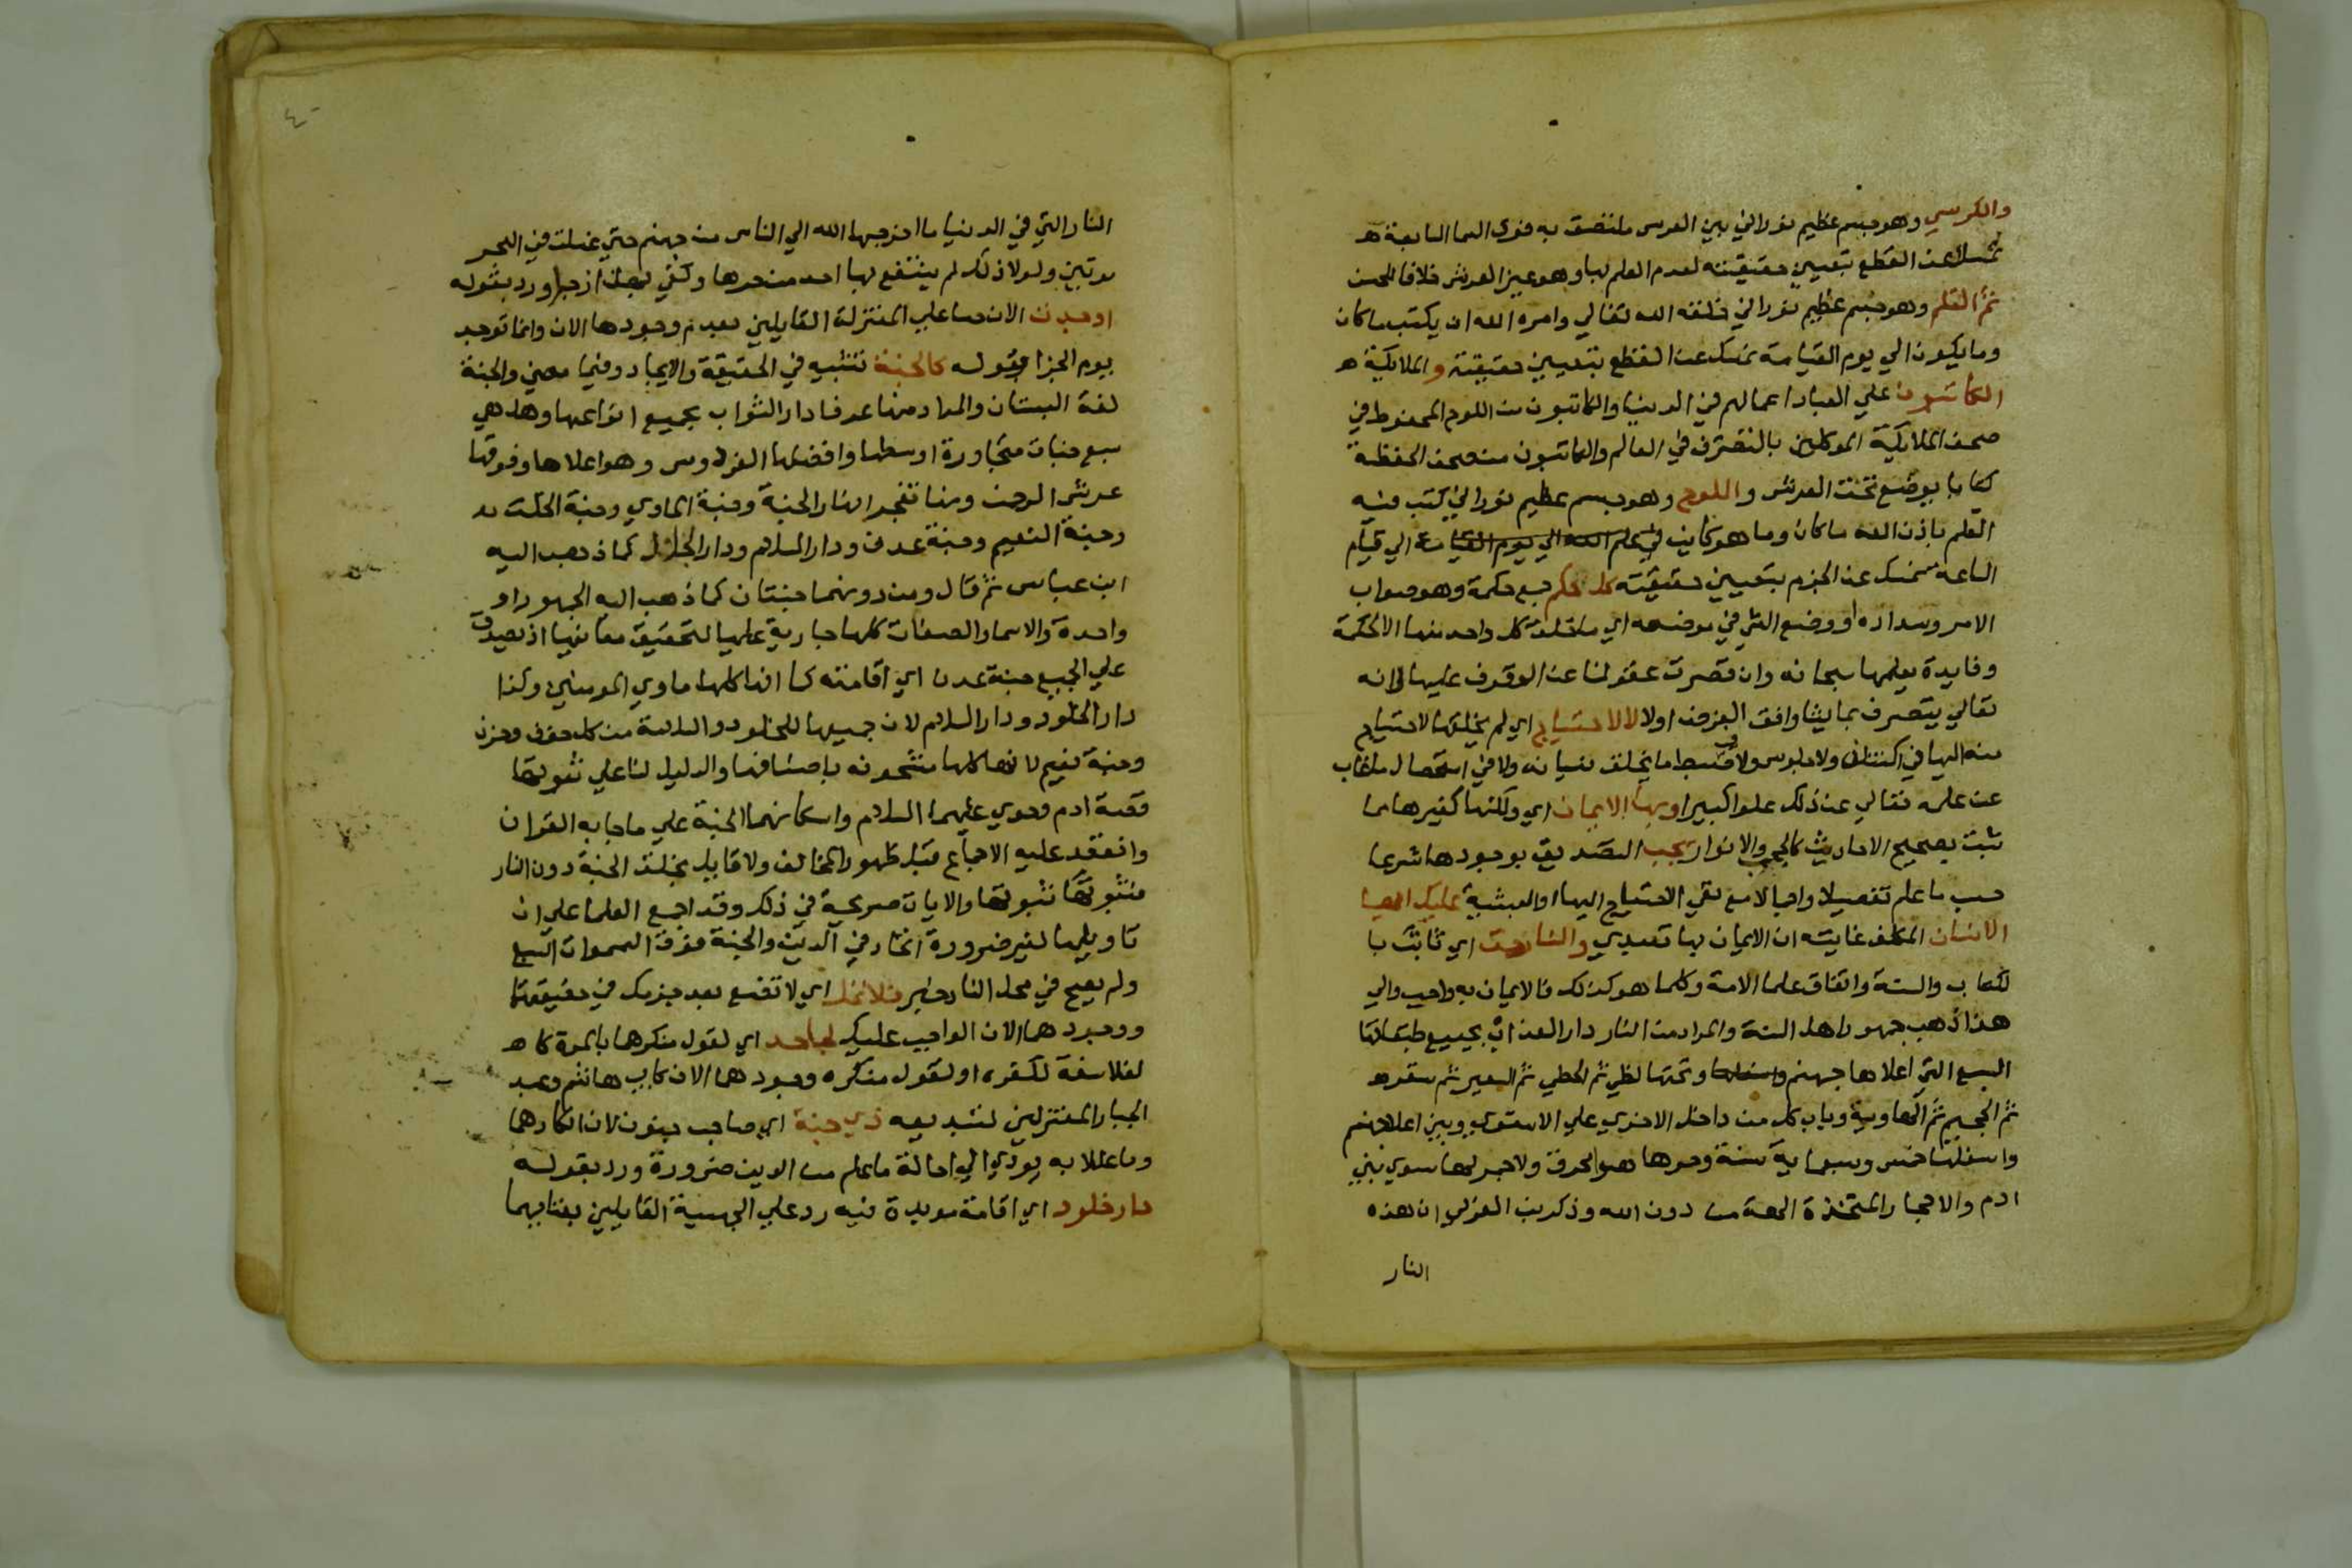 والكرسي وهو جسم عظيم نوراني بين العرش ملتصق به فوق السما السابعة
نمسك عن القطع بتعيين حقيقته لعدم العلم بها وهو غير العرش خلافا للحسن
ثم القلم وهو جسم عظيم نوراني خلقه الله تعالي وامره الله ان يكتب ما كان
وما يكون الي يوم القيامة نمسك عن القطع بتعيين حقيقته والملايكة
الكاتبون علي العباد اعمالهم في الدنيا والكاتبون من اللوح المحفوظ في
صحف الملايكة الموكلين بالتصرف في العالم والكاتبون من صحف الحفظة
كتابا يوضع تحت العرش واللوح وهو جسم عظيم نوراني كتب فيه
القلم باذن الله ما كان وما هو كاين في علم الله الي يوم القيامة الي قيام
الساعة نمسك عن الجزم بتعيين حقيقته كل حكم جمع حكمة وهو صواب
الامر وسداده او وضع الشي في موضعه اي ما خلق كل واحد منها الا لحكمة
وفايدة يعلمها سبحانه وان قصرت عقولنا عن الوقوف عليها لانه
تعالي يتصرف بما يشا وافق الغرض اولا لا لاحتياج اي لم يخلقها لاحتياج
منه اليها في اكتنان ولا جلوس ولا في ضبط ما يخاف نسيانه ولا في استحصال ما غاب
عن علمه تعالي عن ذلك علوا كبيرا وبها الايمان اي ولكنها كغيرها مما
ثبت بصحيح الاحاديث كالحجب والانوار يجب التصديق بوجودها شرعا
حسب ما علم تفصيلا واجمالا مع نفي الاحتياج اليها والعبثية عليك ايها
الانسان المكلف غايته ان الايمان بها تعبدي والنار حق اي ثابت با
لكتاب والسنة واتفاق علما الامة وكلما هو كذلك فالايمان به واجب والي
هذا ذهب جمهور اهل السنة والمراد من النار دار العذاب بجميع طبقاتها
السبع التي اعلاها جهنم واسفلها وتحتها لظي ثم الحطمي ثم السعير ثم سقر
ثم الجحيم ثم الهاوية وباب كل من داخل الاخري علي الاستوي وبين اعلا جهنم
واسفلها خمس وسبعماية سنة وحرها هوا محرق ولا جمر لها سوي بني
ادم والاحجار المتخذة الهة من دون الله وذكر ابن العربي ان هذه
النار
النار التي في الدنيا ما اخرجها الله الي الناس من جهنم حتي غسلت في البحر
مرتين ولولا ذلك لم ينتفع بها احد من حرها وكفي بهذا زجرا ورد بقوله
اوجدت الان حسا علي المعتزلة القايلين بعدم وجودها الان وانما توجد
يوم الجزا وقوله كالجنة تشبيه في الحقيقة والايجاد وفيما مضي والجنة
لغة البستان والمراد منها عرفا دار الثواب بجميع انواعها وهل هي
سبع جنات متجاورة اوسطها وافضلها الفردوس وهو اعلاها وفوقها
عرش الرحمن ومنها تفجر انهار الجنة وجنة الماوي وجنة الخلد
وجنة النعيم وجنة عدن ودار السلام ودار الجلال كما ذهب اليه
ابن عباس ثم قال ومن دونهما جنتان كما ذهب اليه الجمهور او
واحدة والاسما والصفات كلها جارية عليها لتحقيق معانيها اذ يصدق
علي الجميع جنة عدن اي اقامته كما انها كلها ماوي المومنين وكذا
دار الخلود ودار السلام لان جميعها للخلود والسلامة من كل خوف وحزن
وجنة نعيم لانها كلها مشحونه باصنافها والدليل لنا علي ثبوتها
قصة ادم وحوي عليهما السلام واسكانهما الجنة علي ما جا به القران
وانعقد عليه الاجماع قبل ظهور المخالف ولا قايل بخلق الجنة دون النار
فثبوتها ثبوتها والايات صريحة في ذلك وقد اجمع العلما علي ان
تاويلها لغير ضرورة الحاد في الدين والجنة فوق السموات السبع
ولم يصح في محل النار خبر فلا تمل اي لا تصغ بعد جزمك في حقيقتها
ووجودهما الان الواجب عليك لجاحد اي لقول منكرها بالمرة كا
لفلاسفة لكفره او لقول منكره وجودهما الان كابي هاشم وعبد
الجبار المعتزلين لتبديعه ذي جنة اي صاحب جنون لان انكارهما
وما عللا به يودي الي احالة ما علم من الدين ضرورة ورد بقوله
دار خلود اي اقامة موبدة فيه رد علي الجهمية القايلين بفنايهما